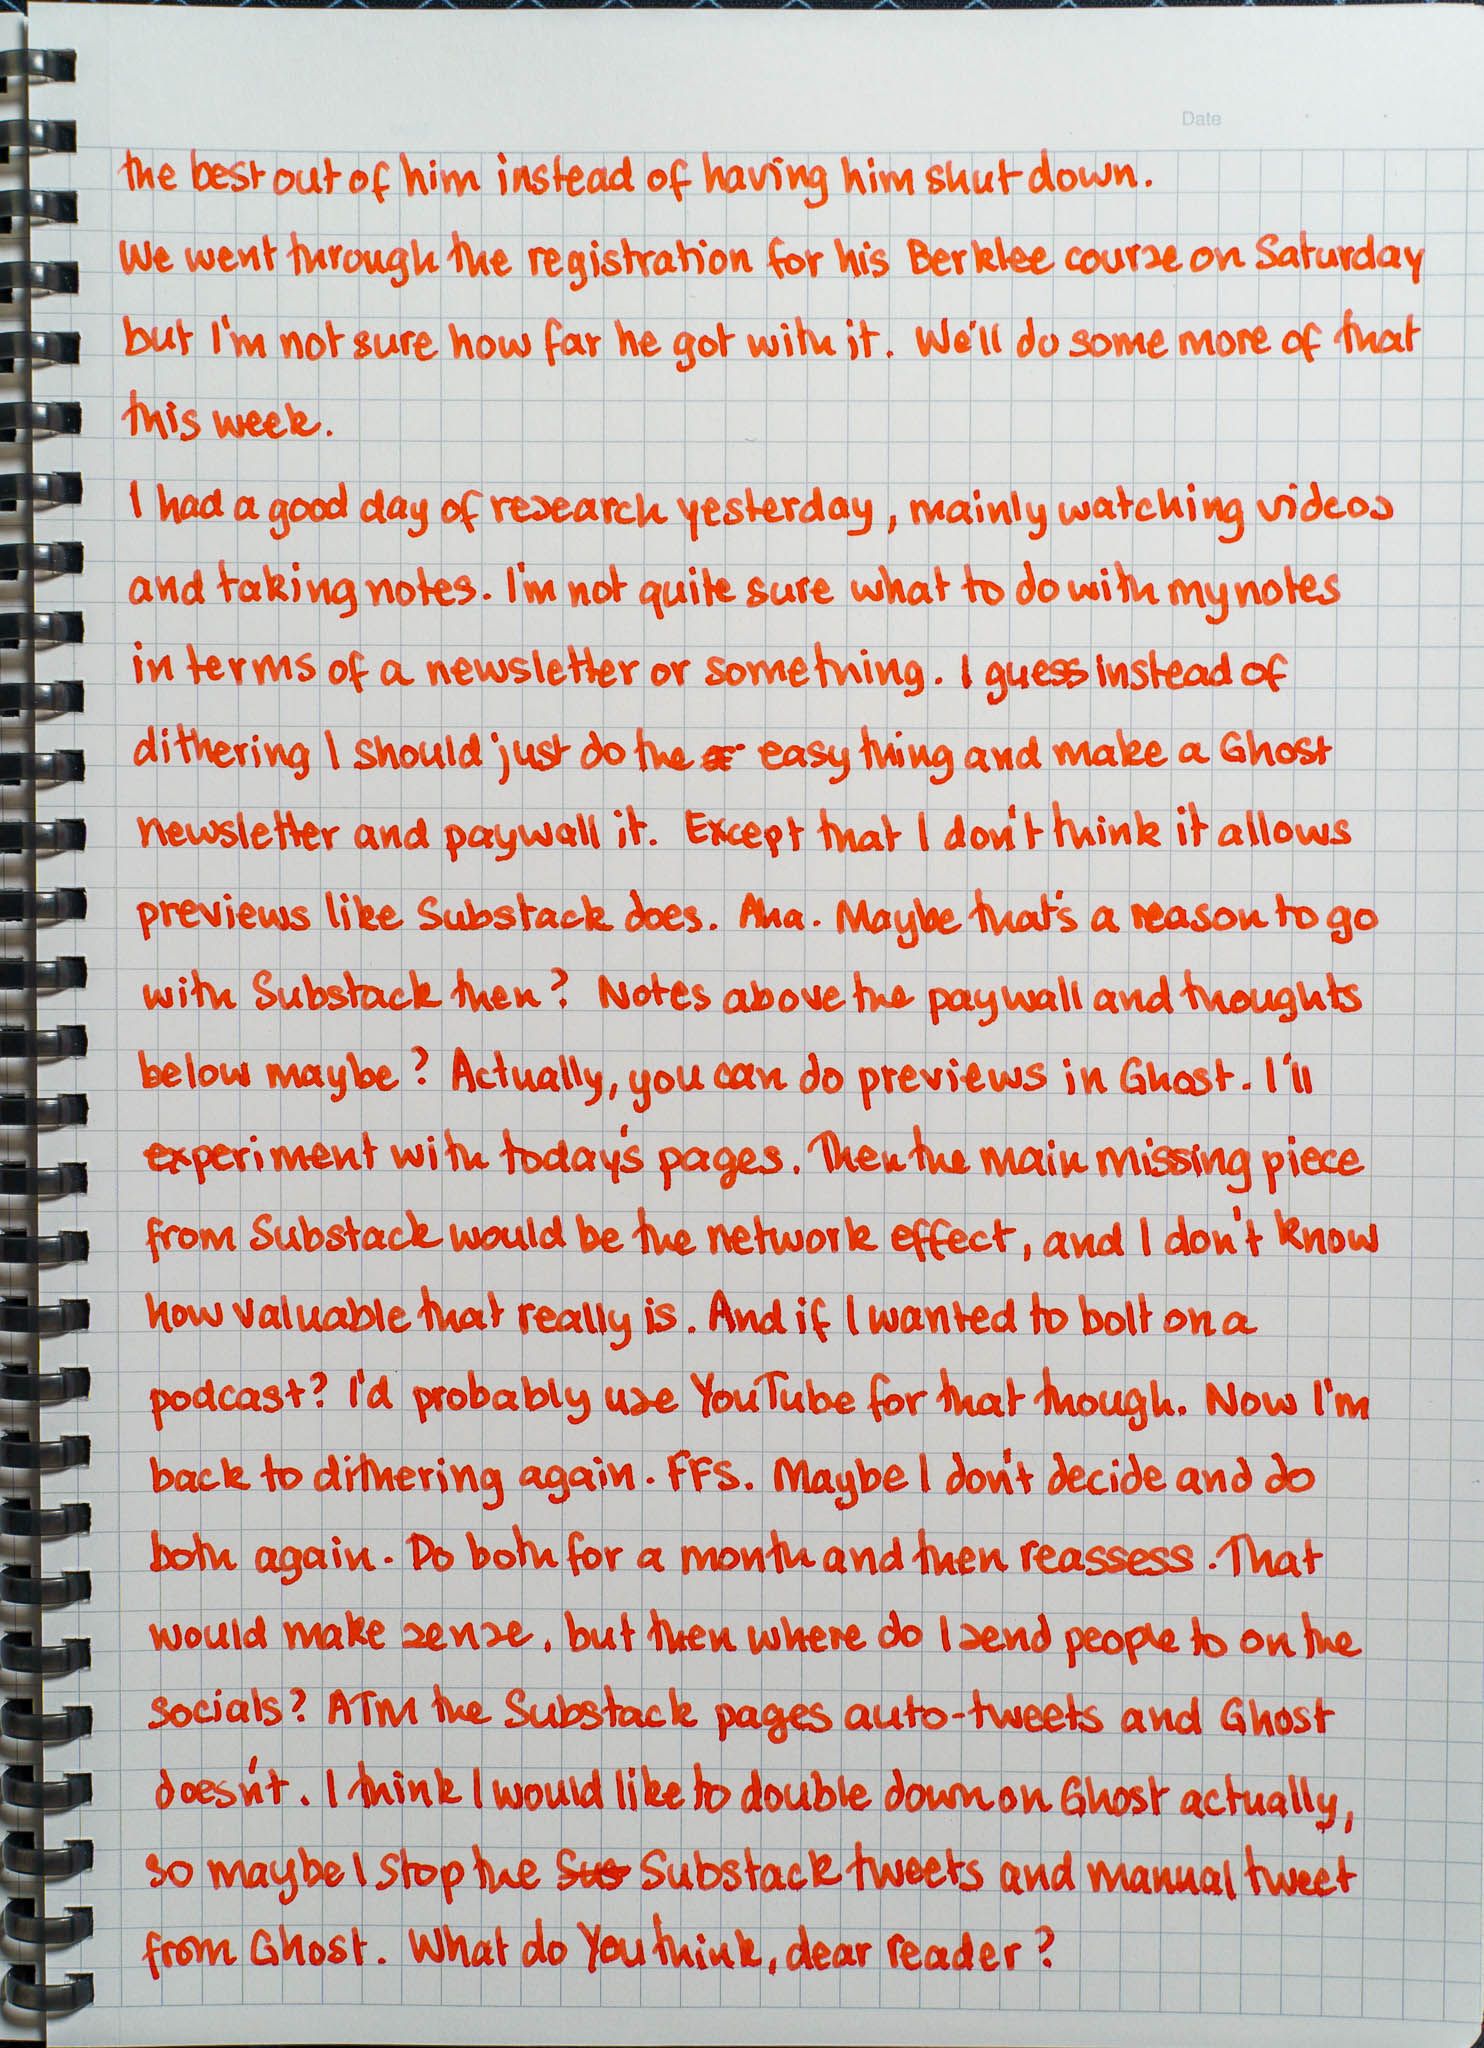 Date
the best out of him instead of having him shut down.
We went through the registration for his Berklee course on Saturday
but I'm not sure how far he got with it. We'll do some more of that
this week.
I had a good day of research yesterday, mainly watching videos
and taking notes. I'm not quite sure what to do with my notes
in terms of a newsletter or something. I guess instead of
dithering I should just do the easy thing and make a Ghost
newsletter and paywall it. Except that I don't think it allows
previews like Substack does. Aha. Maybe that's a reason to go
with Substack then? Notes above the paywall and thoughts
below maybe? Actually, you can do previews in Ghost. I'll
experiment with today's pages. Then the main missing piece
from Substack would be the network effect, and I don't know
how valuable that really is. And if I wanted to bolt on a
podcast? I'd probably use YouTube for that though. Now I'm
back to dithering again. FFS. Maybe I don't decide and do
both again. Do both for a month and then reassess. That
would make sense, but then where do I send people to on the
socials? ATM the Substack pages auto-tweets and Ghost
doesn't. I think I would like to double down on Ghost actually,
so maybe I stop the Sus Substack tweets and manual tweet
from Ghost. What do You think, dear reader?